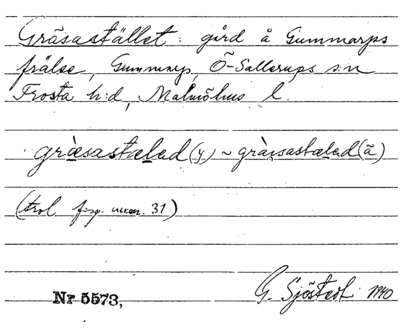 Gräsastället: gård å Gummarps
frälse, Gummarp, Ö-Sallerups s:n
Frosta h:d, Malmöhus l.
græ̀sastæLad (y) ~ græ̀sastæLad (ä)
31)
Nr 5573, G. Sjöstedt 1940